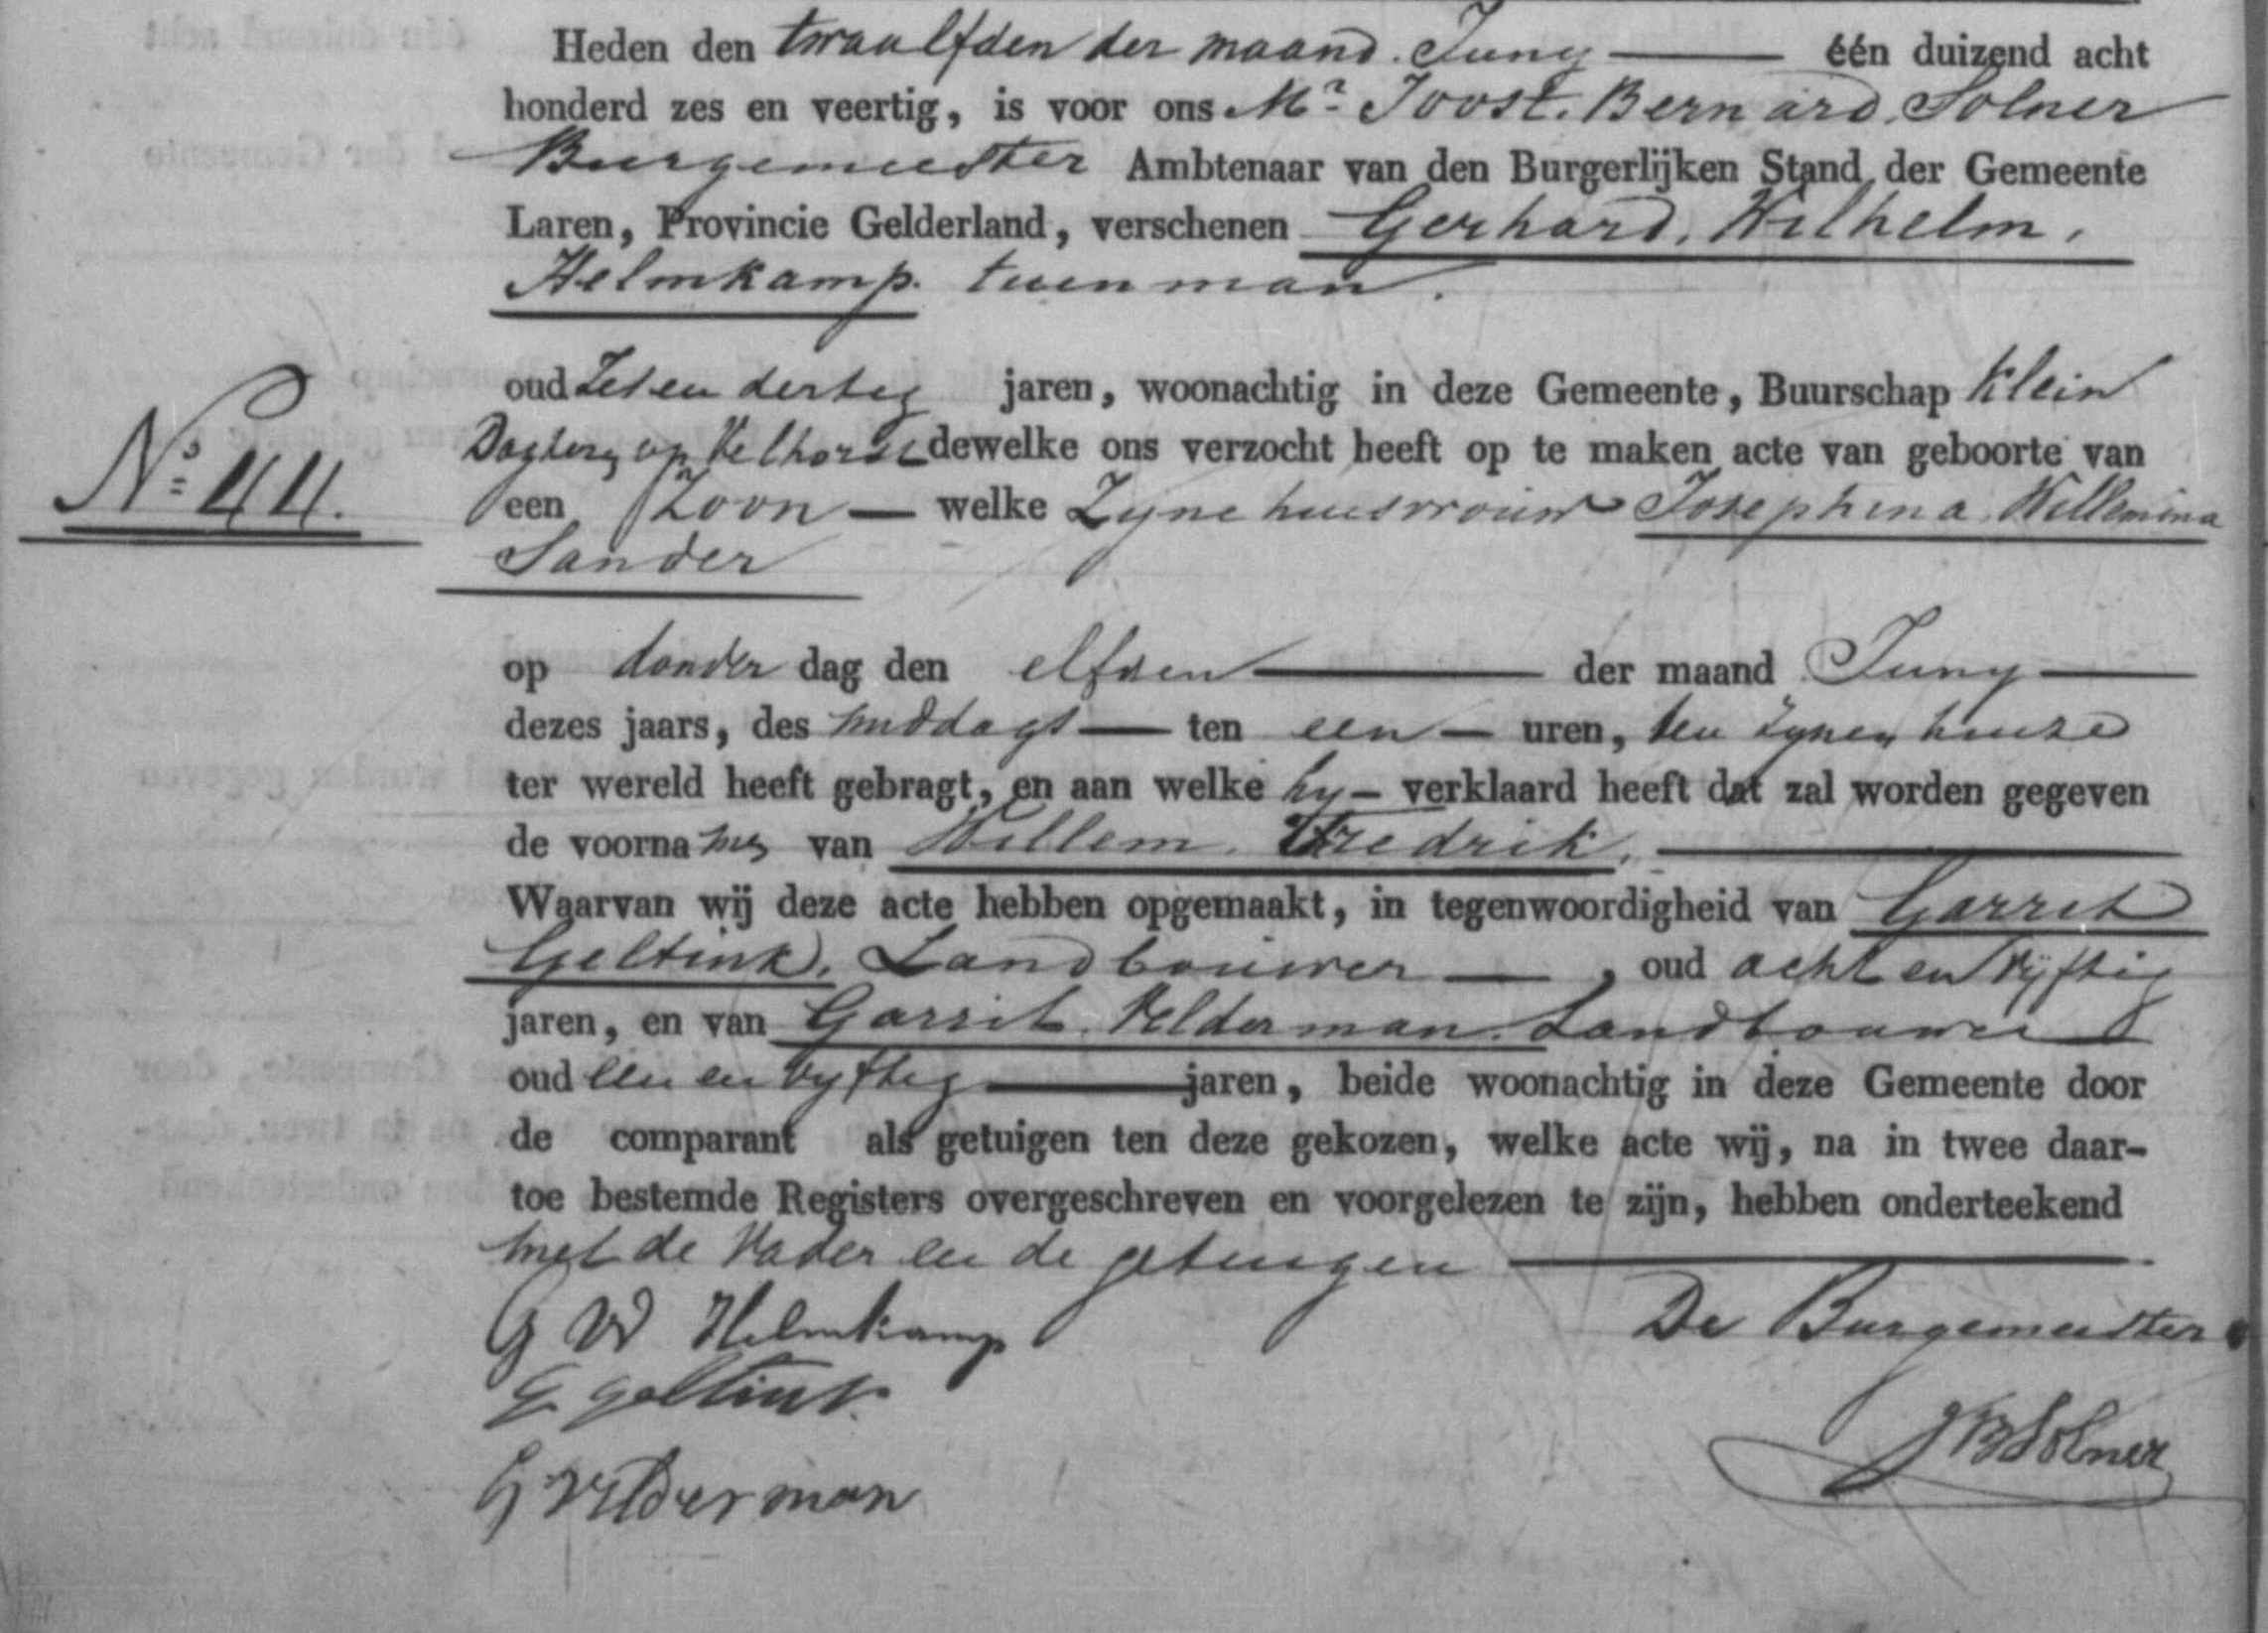 Heden den twaalfden der maand Juny — één duizend acht
honderd zes en veertig, is voor ons Mr. Joost Bernard Solner
Burgemeester Ambtenaar van den Burgerlijken Stand der Gemeente
Laren, Provincie Gelderland, verschenen Gerhard Wilhelm
Helmkamp tuinman.
oud Zes en dertig jaren, woonachtig in deze Gemeente, Buurschap Klein
Dogterg op Velhorst dewelke ons verzocht heeft op te maken acte van geboorte van
No. 44.
een Zoon — welke Zyne huisvrouw Josephina Willemina
Sander
op donder dag den elfden — der maand Juny —
dezes jaars, des middags — ten een — uren, ten zynen huize
ter wereld heeft gebragt, en aan welke hy — verklaard heeft dat zal worden gegeven
de voornamen van Willem Fredrik. —
Waarvan wij deze acte hebben opgemaakt, in tegenwoordigheid van Garrit
Geltink, Landbouwer —, oud acht en vyftig
jaren, en van Garrit Velderman Landbouwer
oud een en vyftig — jaren, beide woonachtig in deze Gemeente door
de comparant als getuigen ten deze gekozen, welke acte wij, na in twee daar-
toe bestemde Registers overgeschreven en voorgelezen te zijn, hebben onderteekend
met de Vader en de getuigen —
G W Helmkamp
De Burgemeester
G Geltink
JB Solner
G Velderman